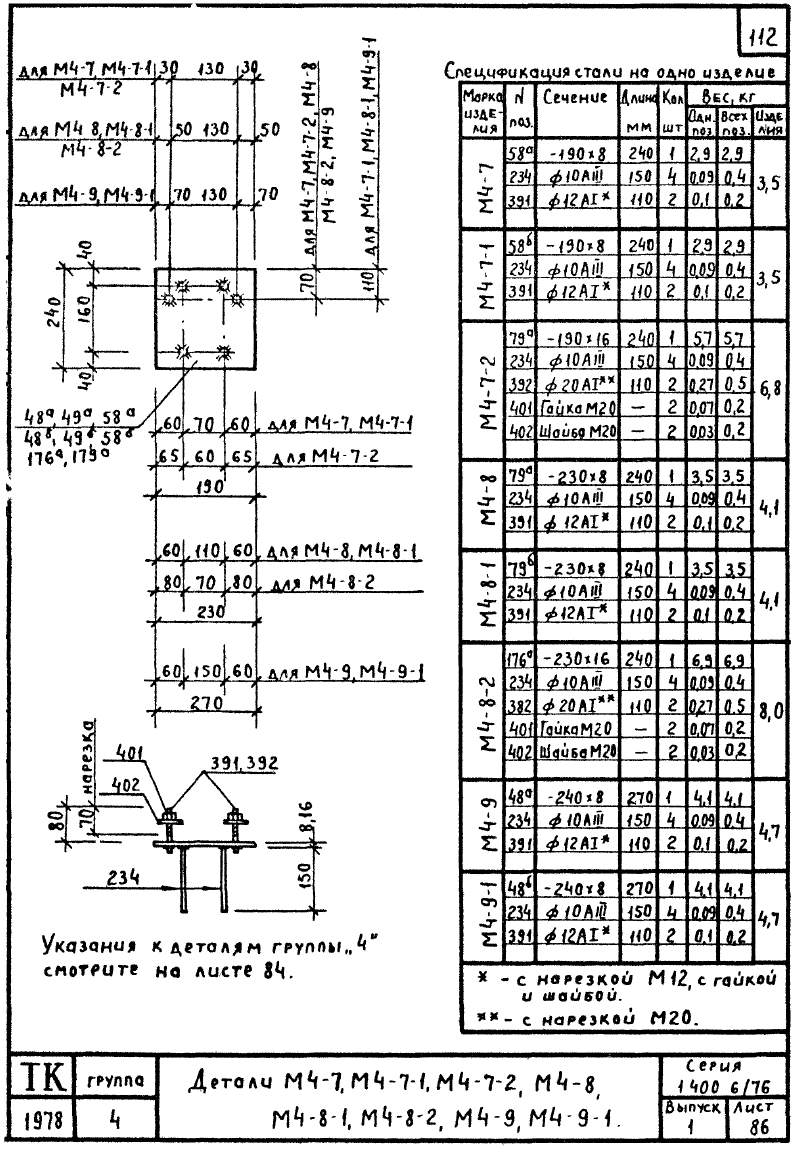 112
для М4-7, М4-7-1 30 130 30
М4-7-2
для М4 8, М4-8-1 50 130 50
М4-8-2
для М4-9, М4-9-1 70 130 70
70 для М4-7, М4-7-2, М4-8
М4-8-2, М4-9
110 для М4-7-1, М4-8-1, М4-9-1
40
240 160
40
48ᵃ, 49ᵃ, 58ᵃ
48ᵇ, 49ᵇ, 58ᵇ
176ᵃ, 179ᵃ
60 70 60 для М4-7, М4-7-1
65 60 65 для М4-7-2
190
60 110 60 для М4-8, М4-8-1
80 70 80 для М4-8-2
230
60 150 60 для М4-9, М4-9-1
270
нарезка
401 391,392
402
80 70 8,16
234 150
Указания к деталям группы „4"
смотрите на листе 84.
Спецификация стали на одно изделие
Марка изделия N поз. Сечение Длина мм Кол шт Вес, кг
Одн. поз Всех поз. Изделия
М4-7 58ᵃ -190×8 240 1 2,9 2,9 3,5
234 ф10АIII 150 4 0,09 0,4
391 ф12АI* 110 2 0,1 0,2
М4-7-1 58ᵟ -190×8 240 1 2,9 2,9 3,5
234 ф10АIII 150 4 0,09 0,4
391 ф12АI* 110 2 0,1 0,2
М4-7-2 79ᵃ -190×16 240 1 5,7 5,7 6,8
234 ф10АIII 150 4 0,09 0,4
392 ф20АI** 110 2 0,27 0,5
401 Гайка М20 — 2 0,07 0,2
402 Шайба М20 — 2 0,03 0,2
М4-8 79ᵃ -230×8 240 1 3,5 3,5 4,1
234 ф10АIII 150 4 0,09 0,4
391 ф12АI* 110 2 0,1 0,2
М4-8-1 79ᵟ -230×8 240 1 3,5 3,5 4,1
234 ф10АIII 150 4 0,09 0,4
391 ф12АI* 110 2 0,1 0,2
М4-8-2 176ᵃ -230×16 240 1 6,9 6,9 8,0
234 ф10АIII 150 4 0,09 0,4
382 ф20АI** 110 2 0,27 0,5
401 Гайка М20 — 2 0,07 0,2
402 Шайба М20 — 2 0,03 0,2
М4-9 48ᵃ -240×8 270 1 4,1 4,1 4,7
234 ф10АIII 150 4 0,09 0,4
391 ф12АI* 110 2 0,1 0,2
М4-9-1 48ᵟ -240×8 270 1 4,1 4,1 4,7
234 ф10АIII 150 4 0,09 0,4
391 ф12АI* 110 2 0,1 0,2
* - с нарезкой М12, с гайкой
и шайбой.
** - с нарезкой М20.
ТК группа
1978 4
Детали М4-7, М4-7-1, М4-7-2, М4-8,
М4-8-1, М4-8-2, М4-9, М4-9-1.
Серия
1 400 6/76
Выпуск Лист
1 86